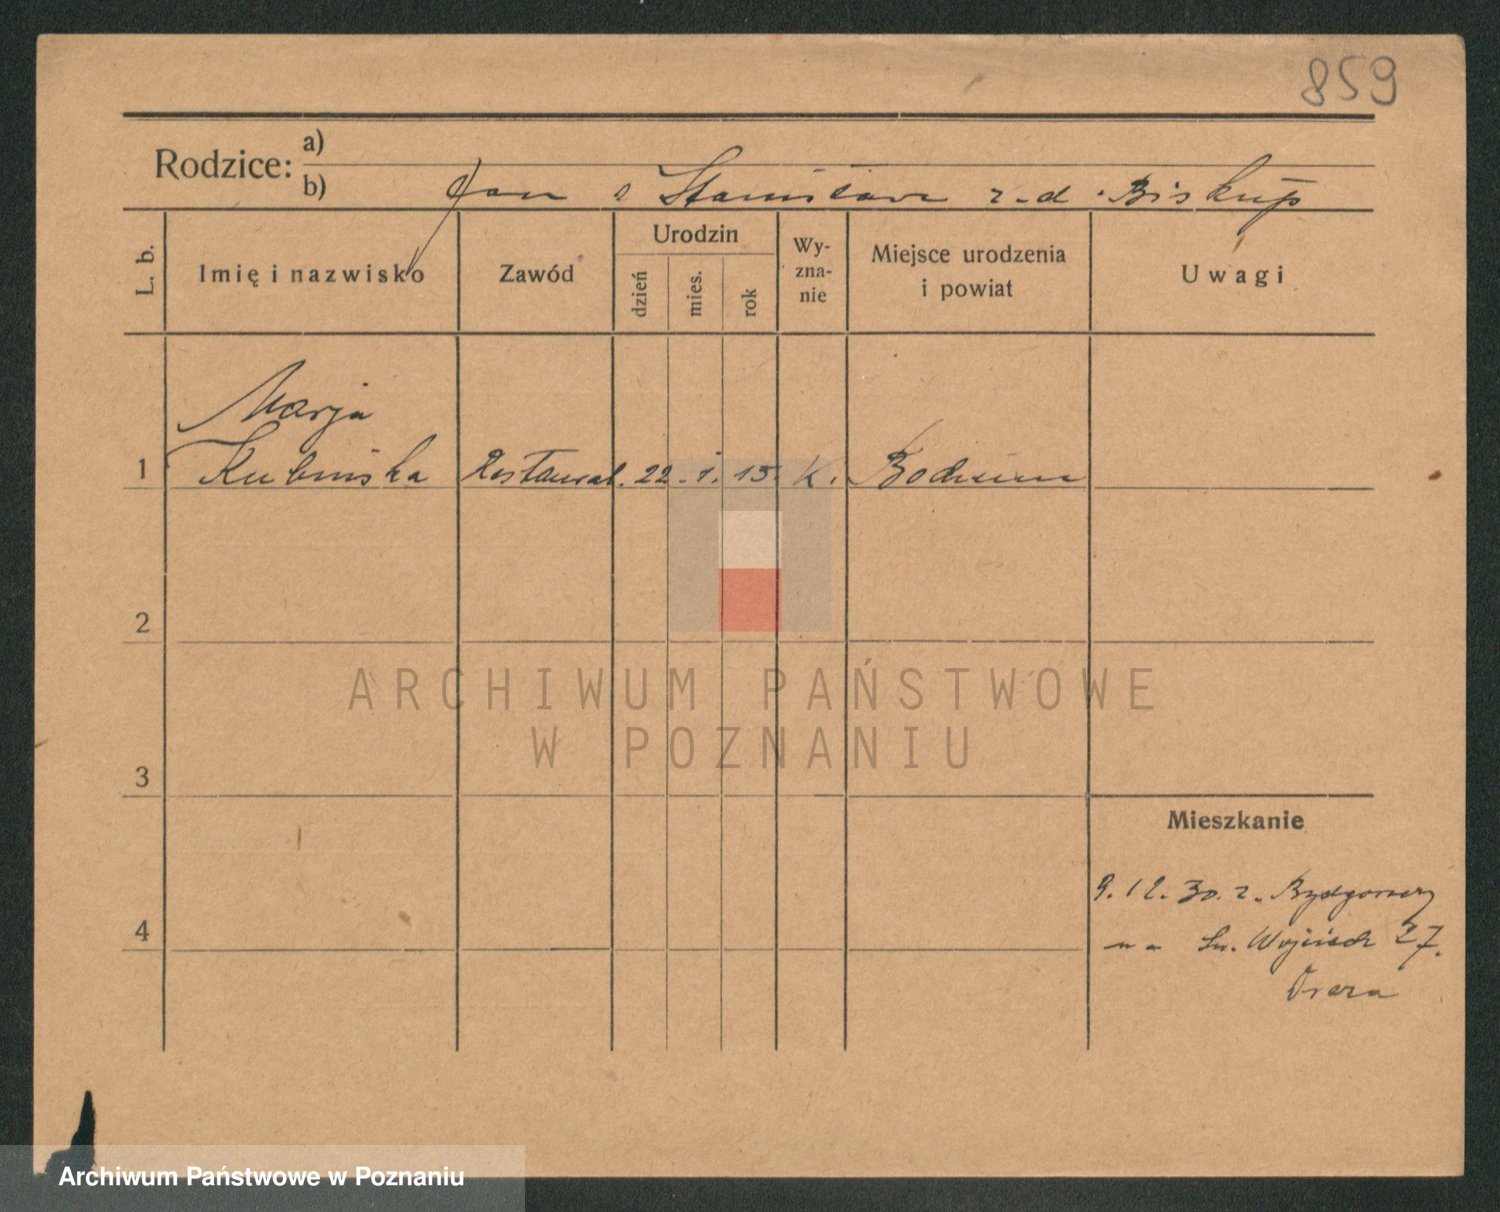 859
Rodzice: a)
b) Jan i Stanisława z d. Biskup
L. b.
Imię i nazwisko
Zawód
Urodzin
dzień
mies.
rok
Wy-
zna-
nie
Miejsce urodzenia
i powiat
Uwagi
Marja
1 Kubińska Restaurat. 22. 1. 15. K. Bochum
2
3
4
Mieszkanie
9. 12. 30. z. Bydgoszczy
na Św. Wojciech 27.
ARCHIWUM PAŃSTWOWE
W POZNANIU
Archiwum Państwowe w Poznaniu